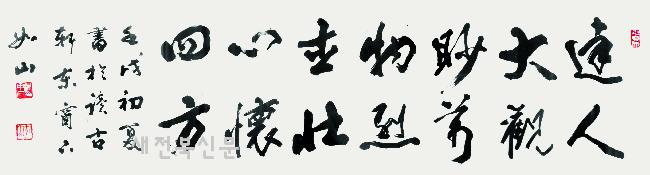 達人
大觀
眇萬
物烈
士壯
心懷
四方
壬戌初夏
書於讀古
軒東窗下
如山
새전북신문